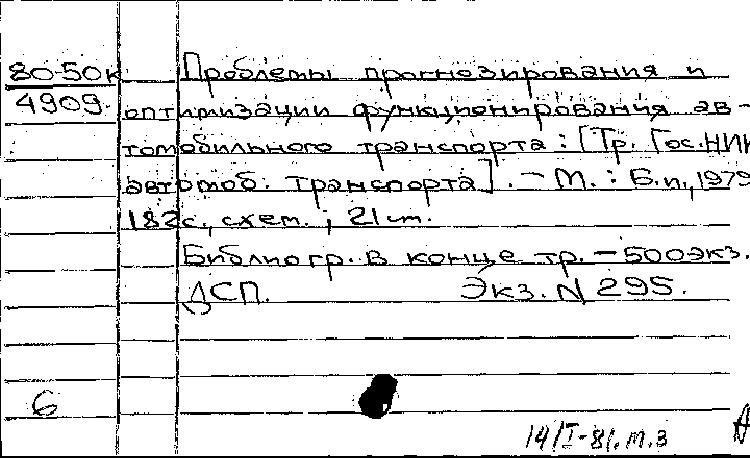 80-50к
4909.
Проблемы прогнозирования и
оптимизации функционирования ав-
томобильного транспорта: [Тр. Гос.НИИ
автомоб. транспорта]. - М.: Б.и., 1979
182с., схем.; 21см.
Библиогр. в конце тр. - 500экз.
ДСП. Экз. N 295.
6
14/I-81. м.з